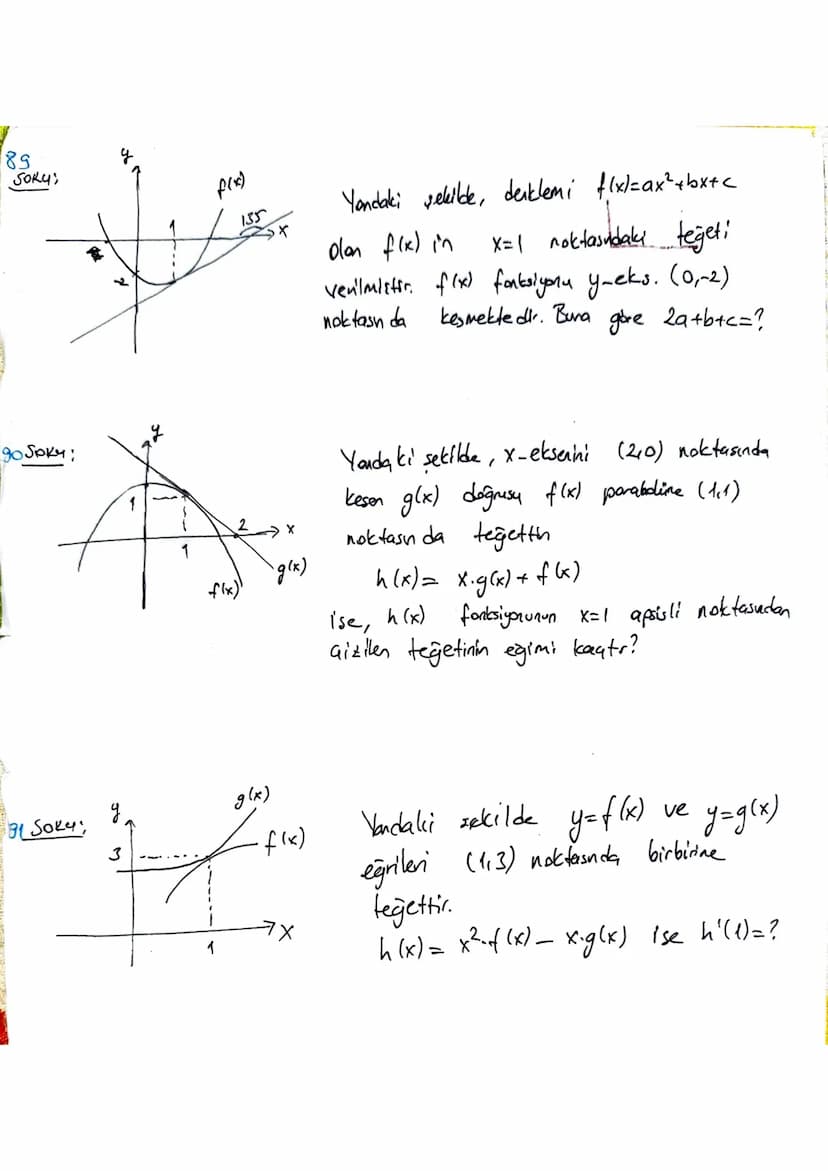 89
SORU:
y
f(x)
1
135
x
-2
Yandaki şekilde, denklemi f(x)=ax²+bx+c
olan f(x) in x=1 noktasındaki teğeti
verilmiştir. f(x) fonksiyonu y-eks. (0,-2)
noktasında kesmektedir. Buna göre 2a+b+c=?
90 SORU:
y
1
2
x
1
g(x)
f(x)
Yandaki şekilde, x-eksenini (2,0) noktasında
kesen g(x) doğrusu f(x) parabolüne (1,1)
noktasında teğettir
h(x)= x.g(x)+f(x)
ise, h(x) fonksiyonunun x=1 apsisli noktasından
çizilen teğetinin eğimi kaçtır?
91 SORU:
y
g(x)
f(x)
3
x
1
Yandaki şekilde y=f(x) ve y=g(x)
eğrileri (1,3) noktasında birbirine
teğettir.
h(x)= x².f(x)- x.g(x) ise h'(1)=?